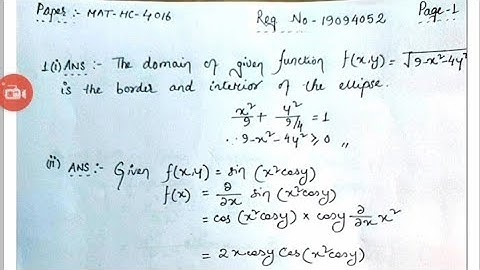 Paper :- MAT-HC-4016 Reg No - 19094052 Page-1
1(i) Ans :- The domain of given function f(x,y) = √9-x²-4y²
is the border and interior of the ellipse.
x²/9 + y²/9/4 = 1
∴ 9-x²-4y² ≥ 0 ,,
(ii) Ans :- Given f(x,y) = sin (x²cosy)
f(x) = ∂/∂x sin (x²cosy)
= cos (x²cosy) × cosy ∂/∂x x²
= 2xcosy Cos (x²cosy)